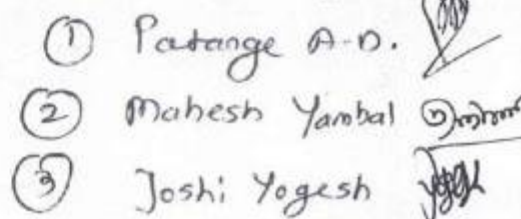 ① Patange A.D.
② Mahesh Yambal
③ Joshi Yogesh